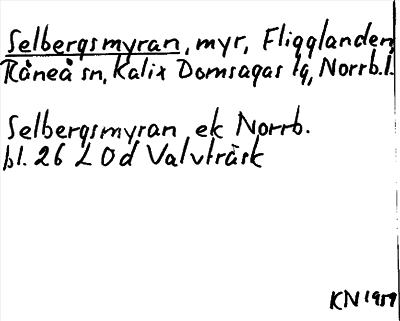 Selbergsmyran, myr, Fligglanden,
Råneå sn, Kalix Domsagas lg, Norrb.l.
Selbergsmyran ek Norrb.
bl. 26 L Od Valvträsk
KN 1959